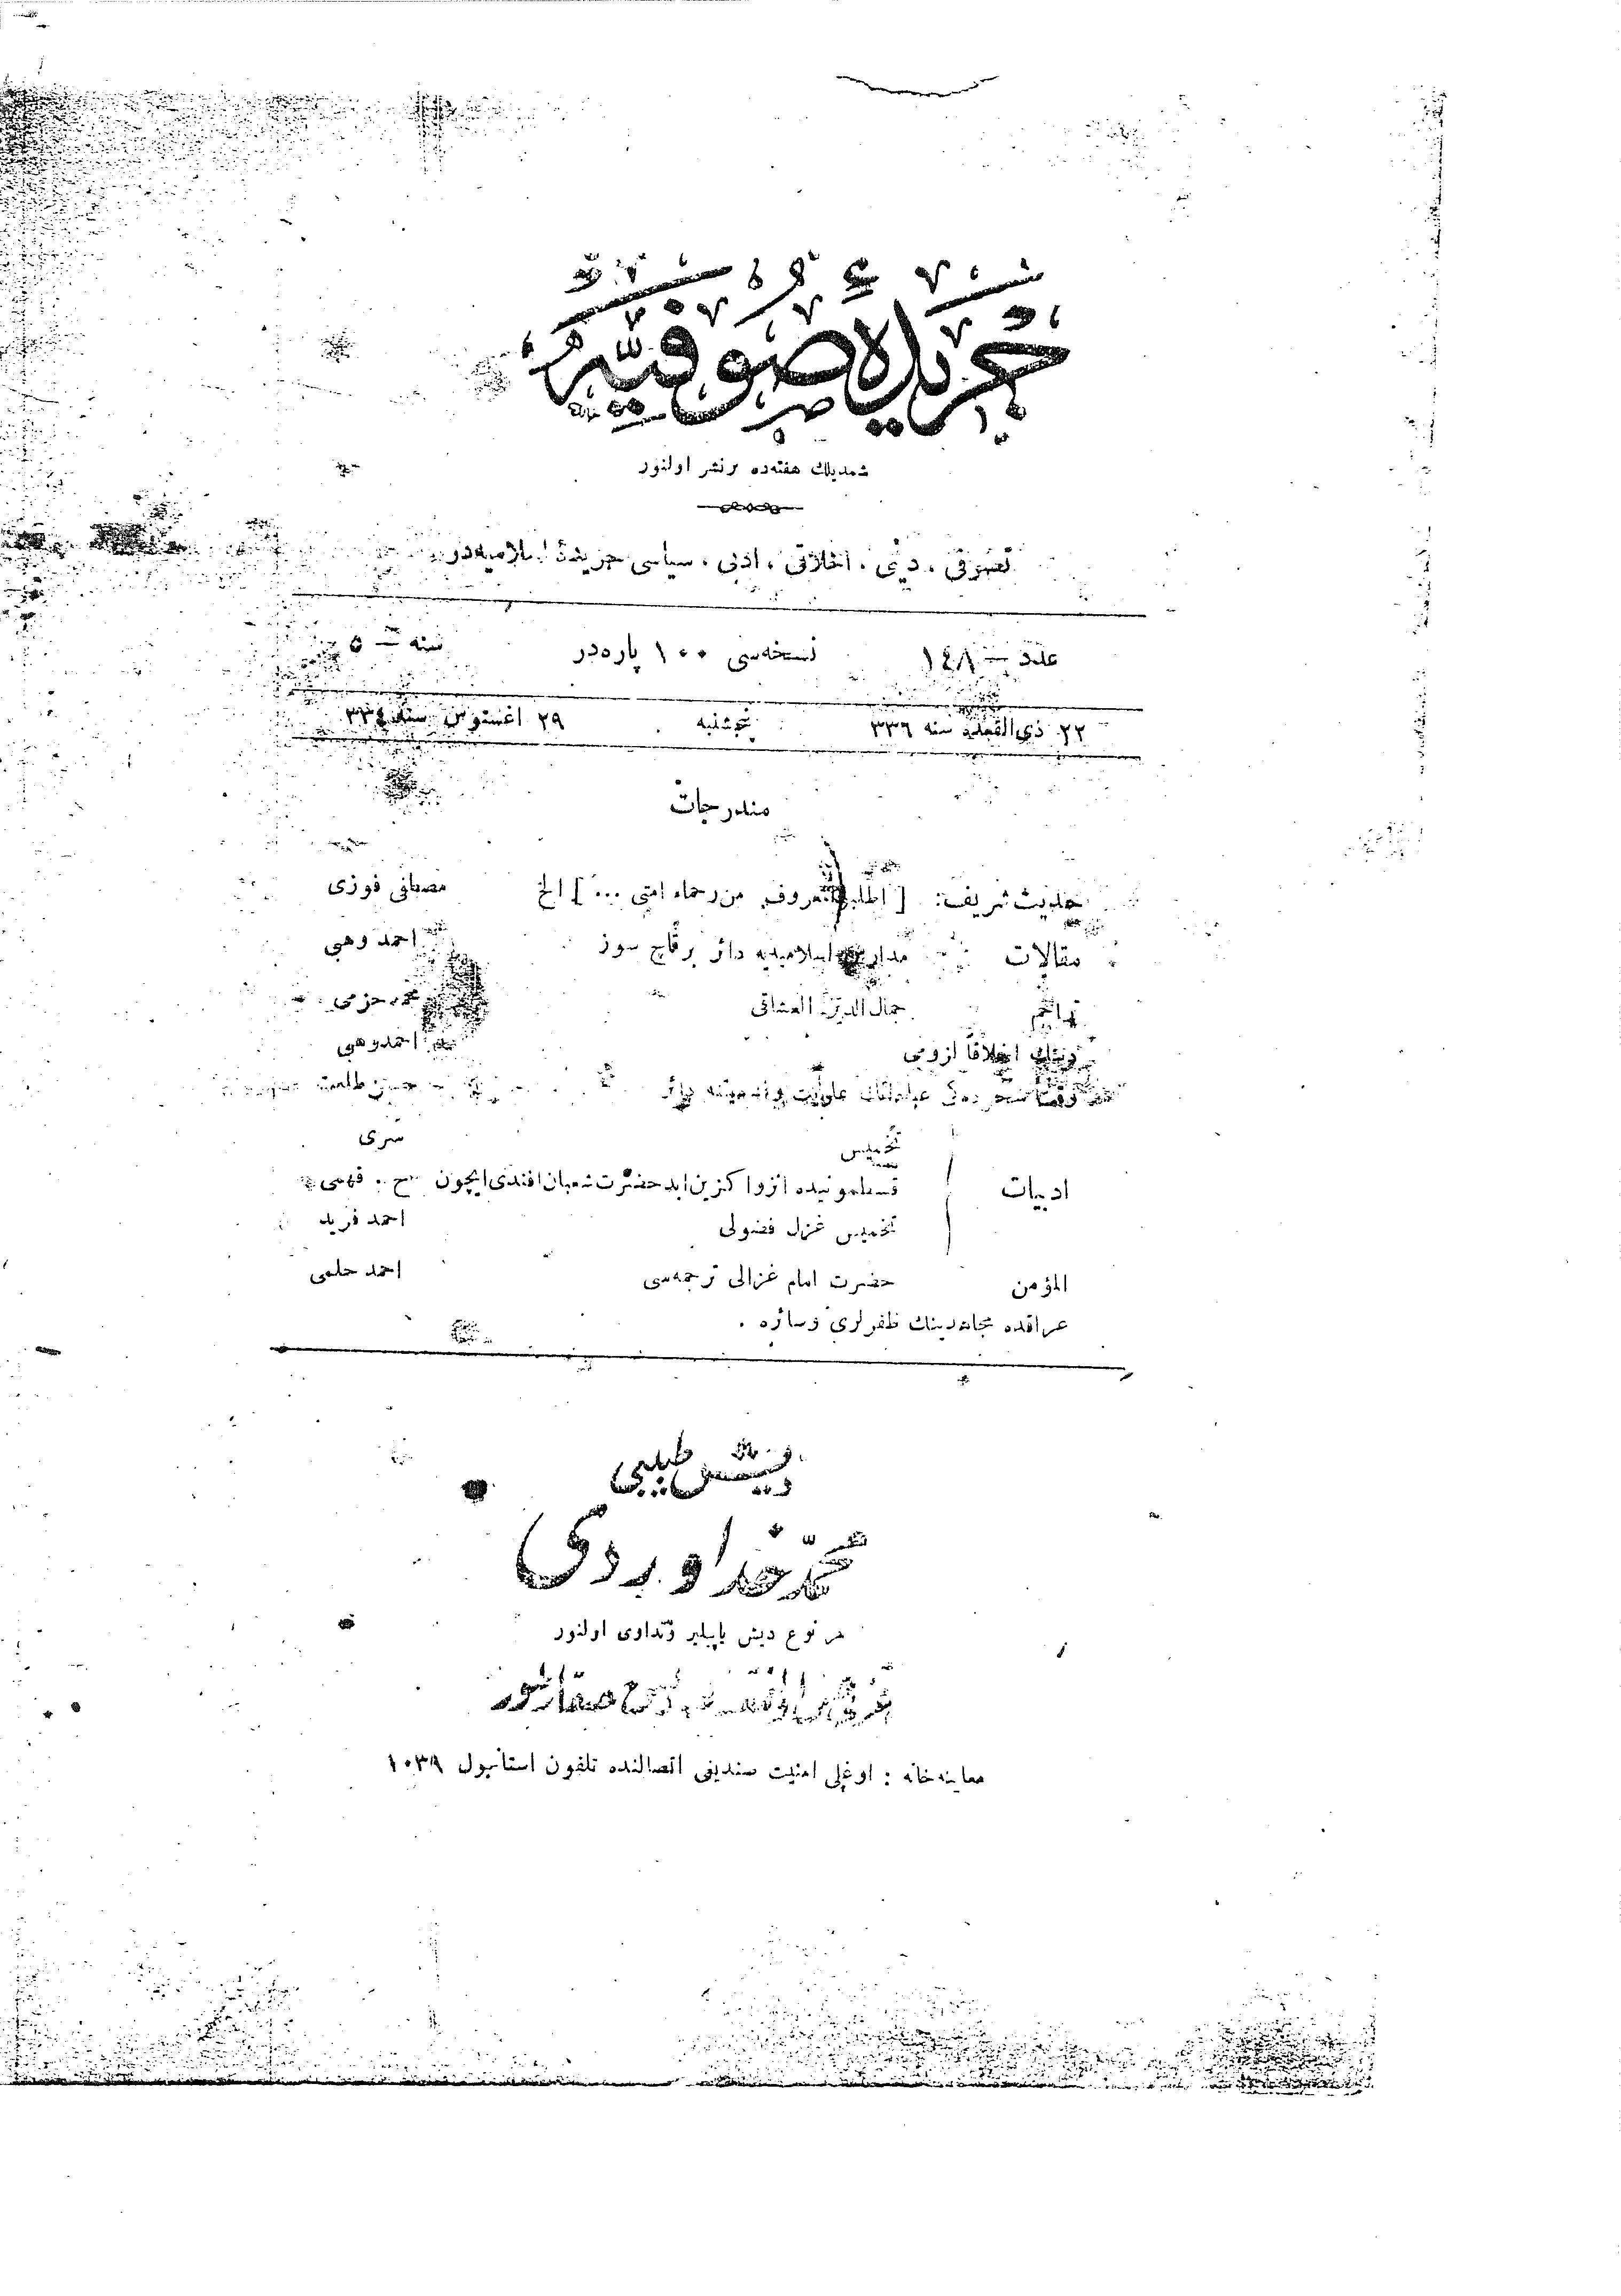 جريدۀ صوفيه
شمديلك هفته‌ده بر نشر اولنور
تصوفی ، دینی ، اخلاقی ، ادبی ، سیاسی جریدۀ اسلامیه‌در
عدد — ١٤٨ نسخه‌سی ١٠٠ پاره‌در سنه — ٥
٢٢ ذی‌القعده سنه ٣٣٦ پنجشنبه ٢٩ اغستوس سنه ٣٣٤
مندرجات
حدیث شریف : [ اطلبوا المعروف من رحماء امتی ... ] الخ مصطفی فوزی
مقالات مدارس اسلامیه‌یه دائر برقاچ سوز احمد وهبی
تراجم جمال الدین العشاقی محمد حزمی
دینك اخلاقاً لزومی احمد وهبی
عباداتك علویت دائر حسن طلعت
ادبیات
تخمیس سری
قسطمونیده انزوا کزین ابد حضرت شعبان افندی ایچون ح . فهمی
تخمیس غزل فضولی احمد فرید
المؤمن حضرت امام غزالی ترجمه‌سی احمد حلمی
عراقده مجاهدینك ظفرلری وسائره .
دیش طبیبی
محمد خداوردی
هر نوع دیش یاپیلیر وتداوی اولنور
معاینه خانه : امنیت صندیغی اتصالنده تلفون استانبول ١٠٣٩